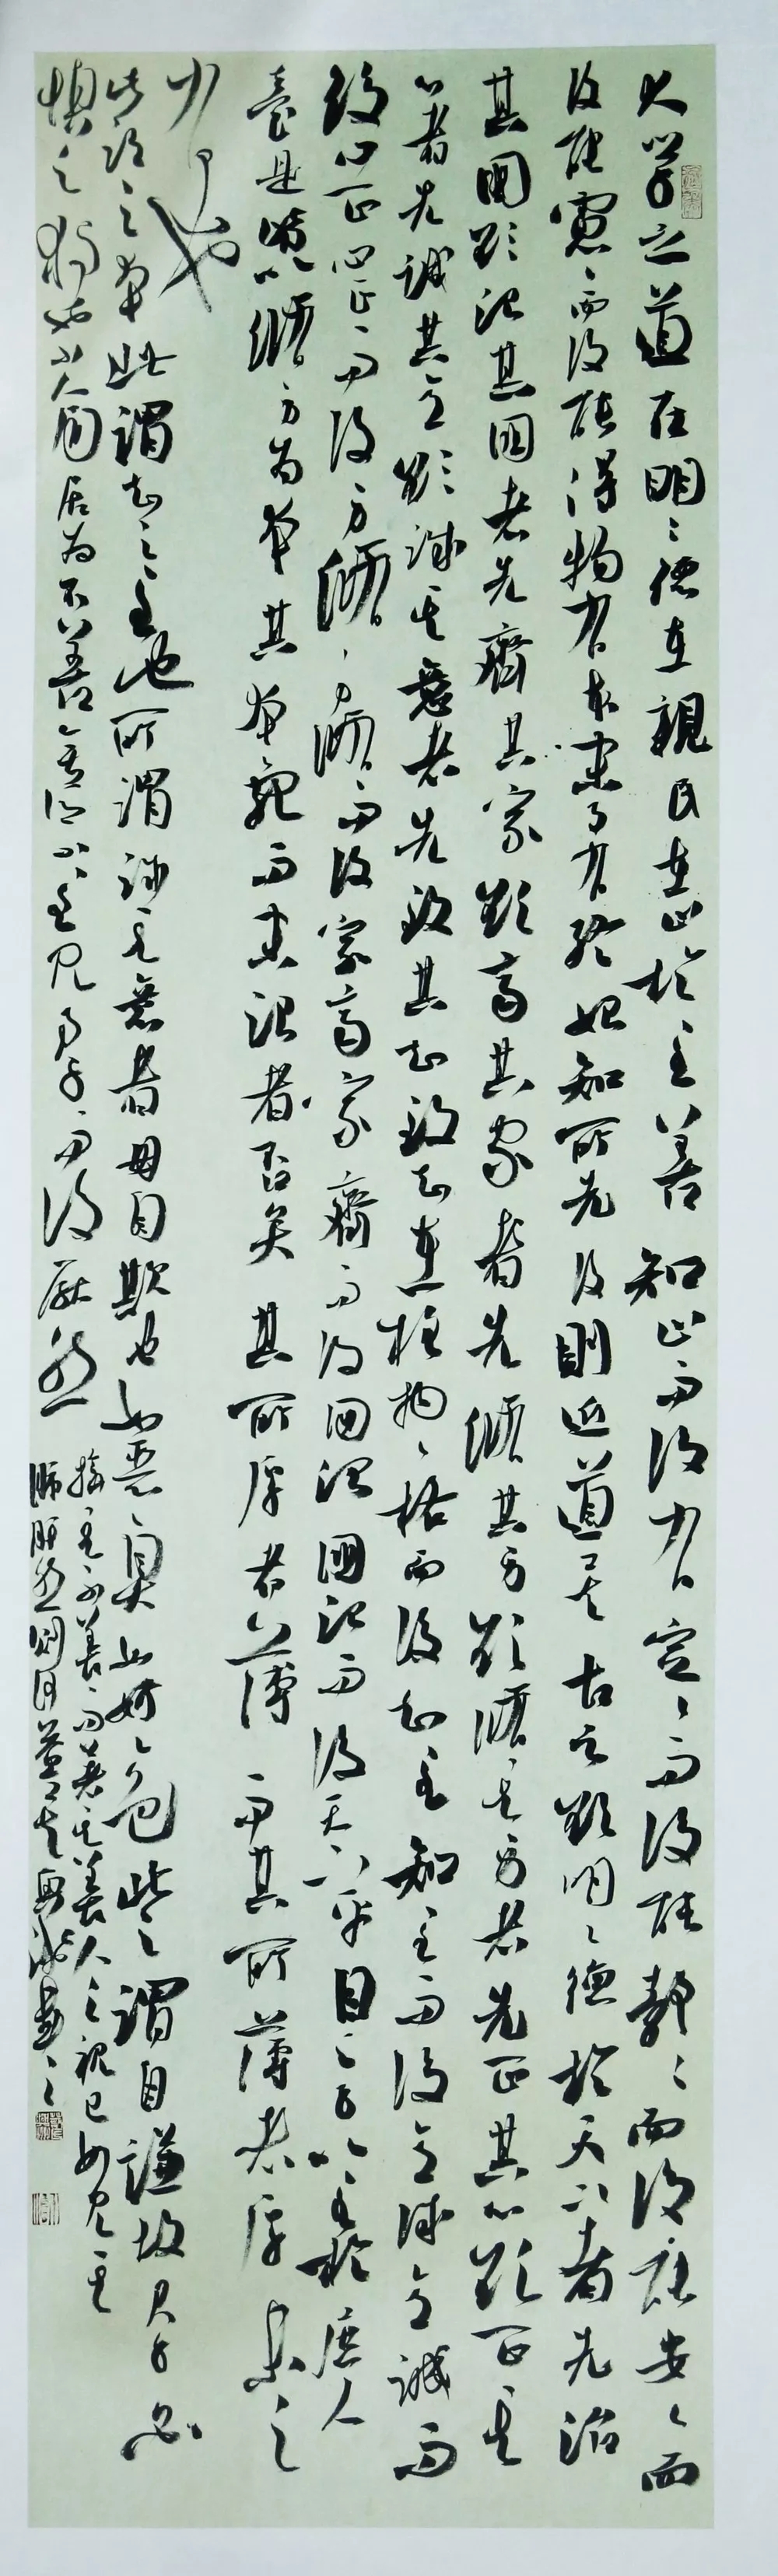 大學之道在明〻德在親民在止於至善知止而後有定〻而後能靜〻而後能安〻而
後能慮〻而後能得物有本末事有終始知所先後則近道矣古之欲明〻德於天下者先治
其國欲治其國者先齊其家欲齊其家者先脩其身欲脩其身者先正其心欲正其
心者先誠其意欲誠其意者先致其知致知在格物〻格而後知至知至而後意誠意誠而
後心正心正〻而後身脩〻身脩而後家齊家齊而後國治國治而後天下平自天子以至於庶人
壹是皆以脩身為本其本亂而末治者否矣其所厚者薄而其所薄者厚未之
有也
此謂知本此謂知之至也所謂誠其意者毋自欺也如惡〻臭如好〻色此之謂自謙故君子必
慎其獨也小人閒居為不善無所不至見君子而後厭然
揜其不善而著其善人之視己如見其
肺肝然則何益矣